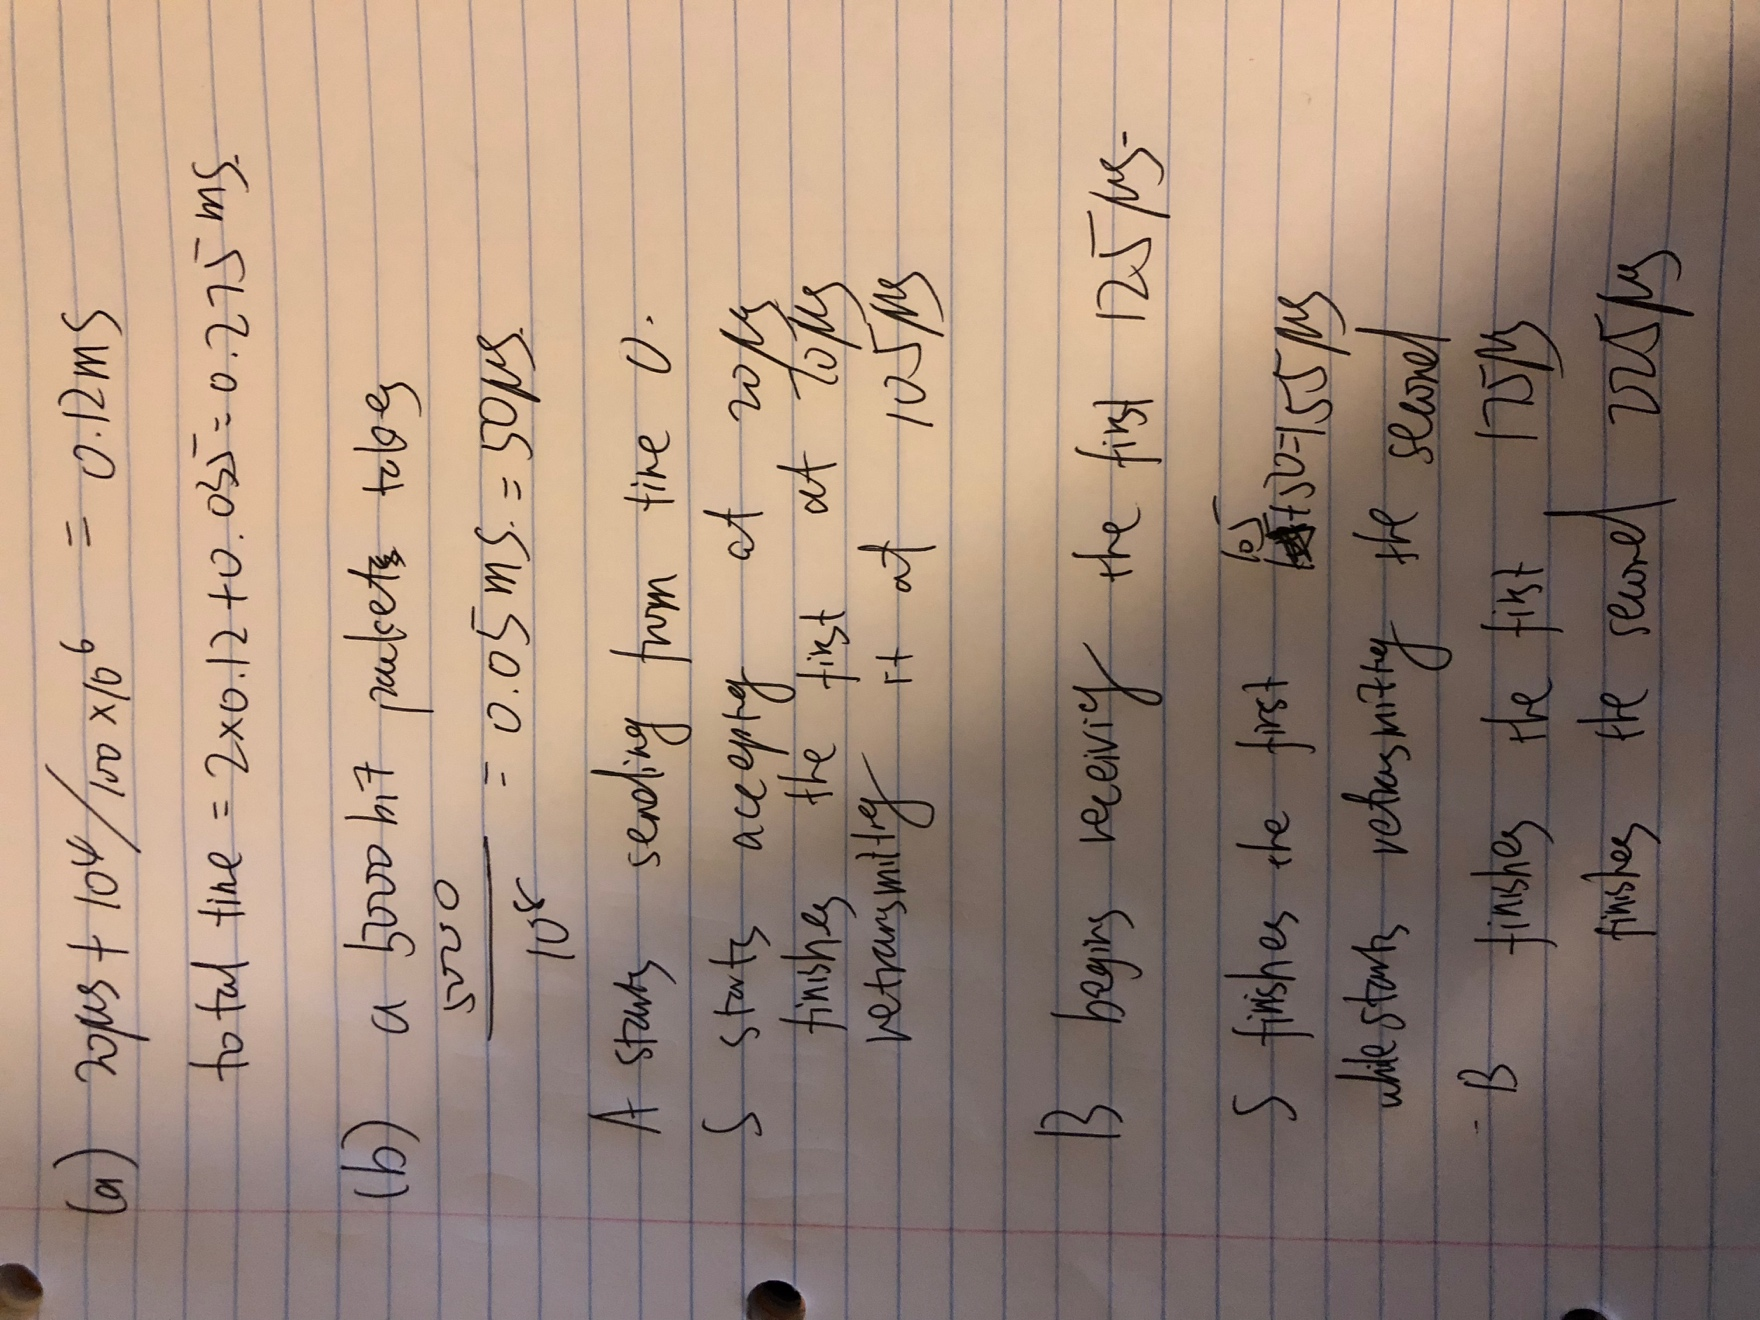 (a) 20μs + 10⁴/100 × 10⁶ = 0.12ms
total time = 2×0.12 + 0.035 = 0.275 ms.
(b) a 5000 bit packets takes
5000
— = 0.05 ms. = 50μs.
10⁸
A starts sending from time 0.
S starts accepting at 20μs
finishes the first at 70μs
retransmitting it at 105μs
B begins receiving the first 125μs.
105
S finishes the first +50=155μs
while starts retransmitting the second
B finishes the first 175μs
finishes the second 225μs